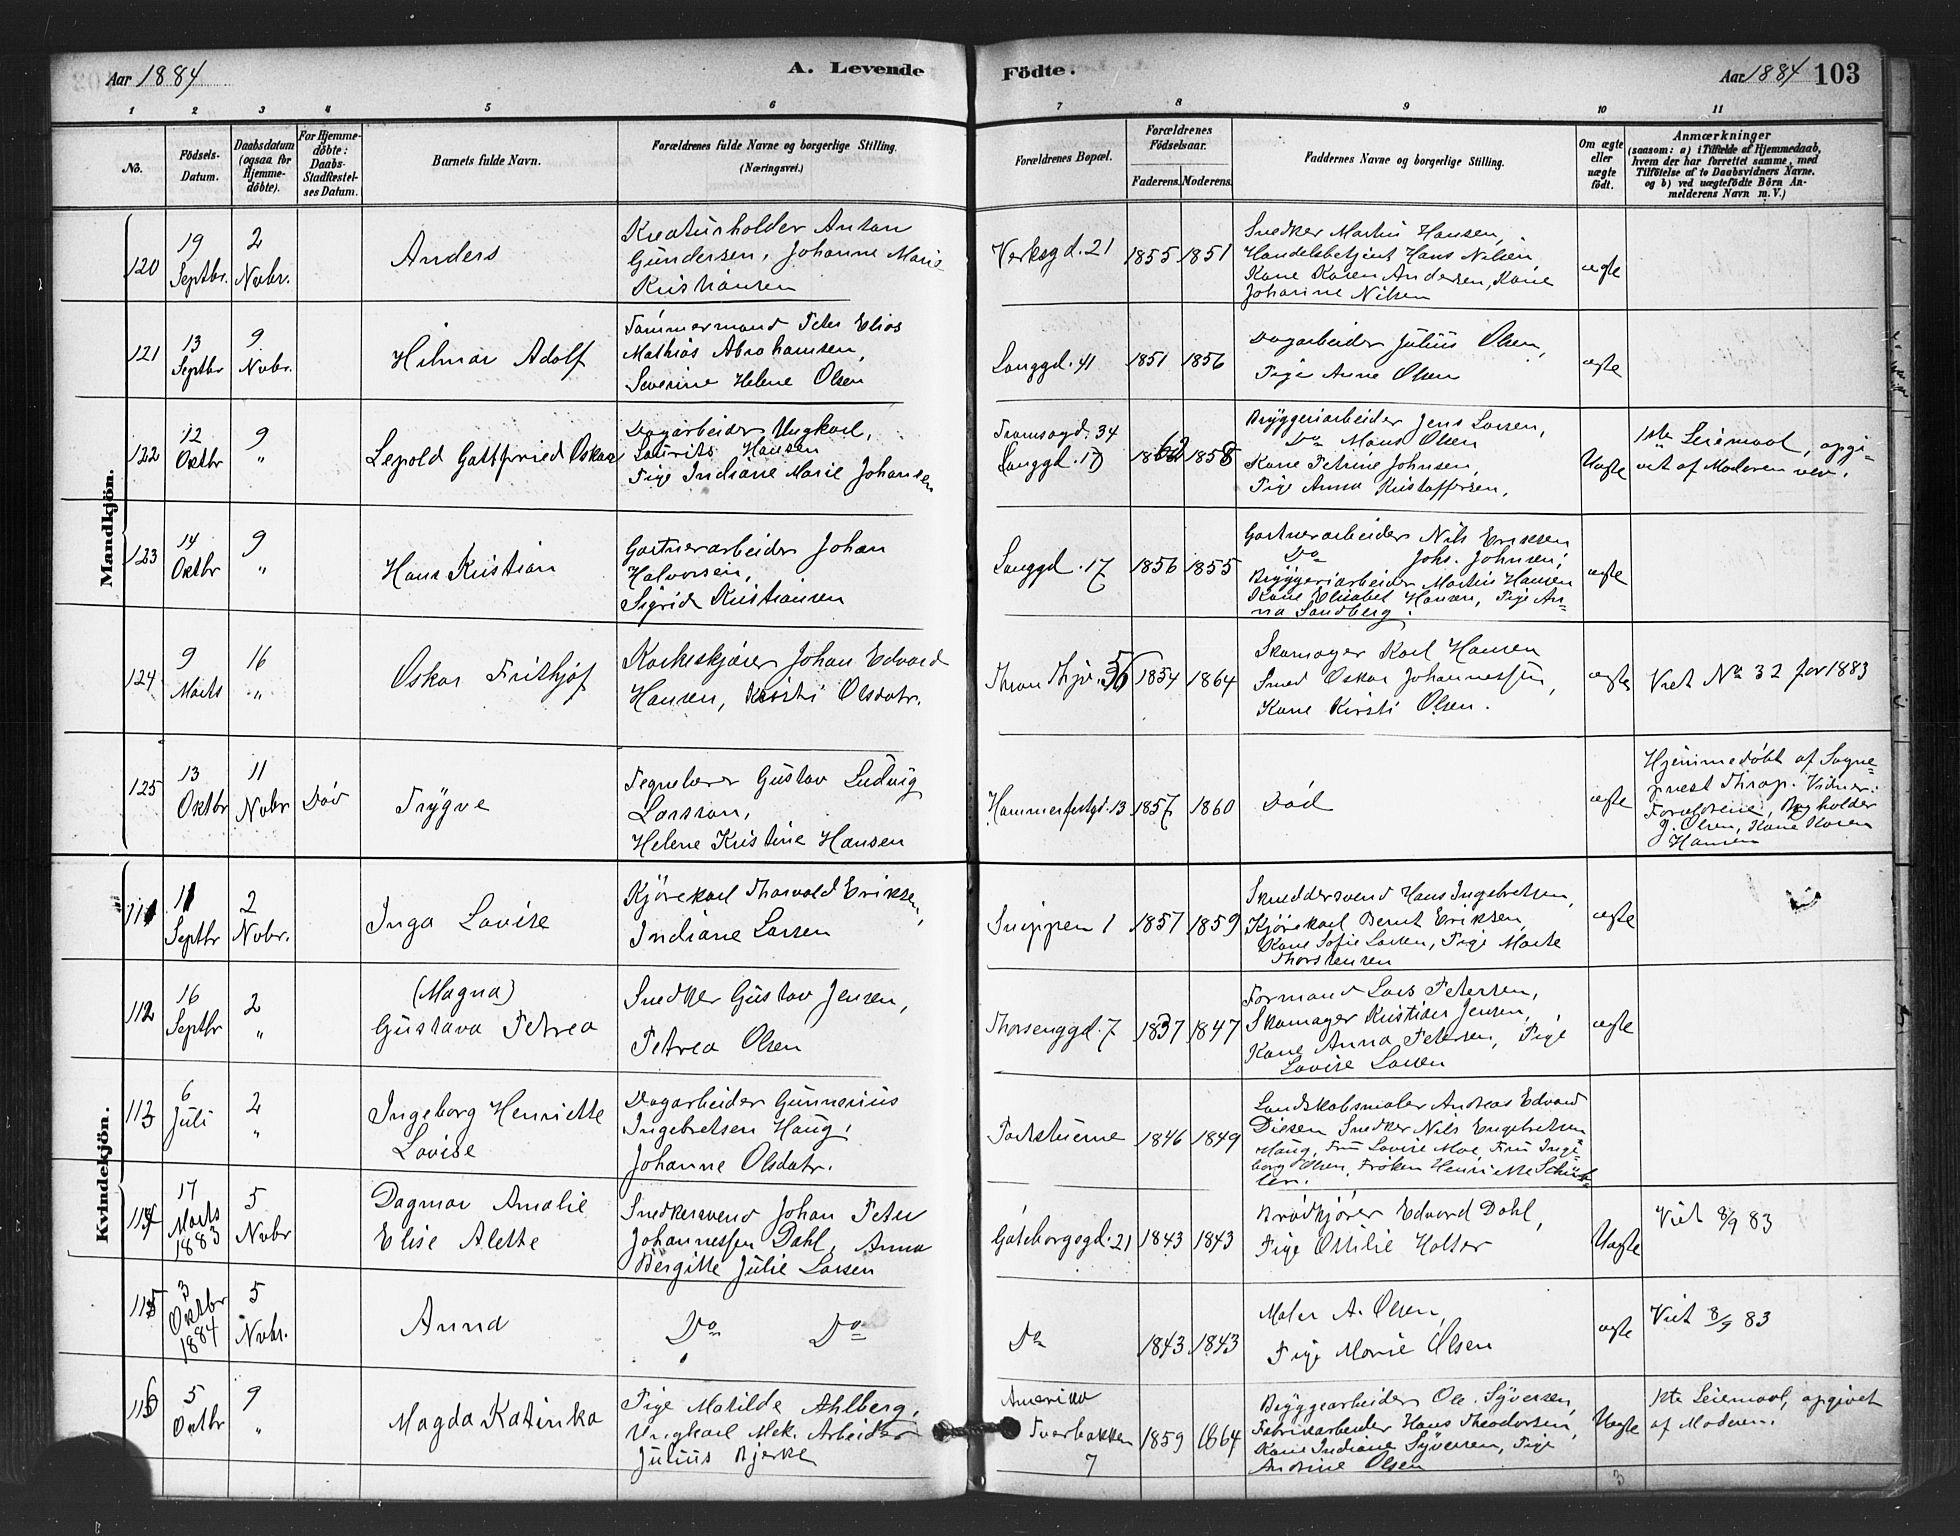 Aar 1884 A. Levende
Födte. Aar 1884 103
1 2 3 4 5 6 7 8 9 10 11
No.
Födsels-
Datum.
Daabsdatum
(ogsaa for
Hjemme-
döbte).
For Hjemme-
döbte:
Daabs-
Stadfæstel-
ses Datum.
Barnets fulde Navn.
Forældrenes fulde Navne og borgerlige Stilling.
(Næringsvei.)
Forældrenes Bopæl.
Forældrenes
Födselsaar.
Faderens. Moderens.
Faddernes Navne og borgerlige Stilling.
Om ægte
eller
uægte
födt.
Anmærkninger
(saasom: a) i Tilfælde af Hjemmedaab,
hvem der har forrettet samme, med
Tilföielse af to Daabsvidners Navne.
og b) ved uægtefödte Börn An-
melderens Navn m. V.)
Mandkjön.
120
19
Septbr.
2
Novbr.
Anders
Kreaturholder Anton
Gundersen, Johanne Marie
Kristiansen
Verksgd. 21
1855 1851
Snedker Martin Hansen,
Handelsbetjent Hans Nilsen
Kone Karen Andersen, Kone
Johanne Nilsen
ægte
121
13
Septbr
9
Novbr.
Hilmar Adolf
Tømmermand Peter Elias
Mathias Abrahamsen,
Severine Helene Olsen
Langgd. 41
1851 1856
Dagarbeider Julius Olsen,
Pige Anne Olsen
ægte
122
12
Oktbr
9
"
Lepold Gottfried Oskar
Dagarbeider Ungkarl,
Laurits Hansen
Pige Indiane Marie Johansen
Tromsøgd. 34
Langgd. 17
1862 1858
Bryggeriarbeider Jens Larsen,
Do Måns Olsen
Kone Petrine Johnsen,
Pige Anna Kristoffersen,
Uægte
1ste Leiemaal, opgi-
vet af Moderen selv.
123
14
Oktbr
9
"
Hans Kristian
Gartnerarbeider Johan
Halvorsen,
Sigrid Kristiansen
Langgd. 17
1856 1855
Gartnerarbeider Nils Eriksen
Do Johs. Johnsen,
Bryggeriarbeider Martin Hansen
Kone Elisabet Hansen, Pige An-
na Sandberg.
ægte
124
9
Marts
16
"
Oskar Frithjof
Korkeskjærer Johan Edvard
Hansen, Kirsti Olsdatr.
Thron Thjv. 56
1854 1864
Skomager Karl Hansen
Smed Oskar Johannessen,
Kone Kirsti Olsen.
ægte
Viet No 32 for 1883
125
13
Oktbr
11
Novbr
Död
Trygve
Tegnelærer Gustav Ludvig
Larsson,
Helene Kristine Hansen
Hammerfestgd. 13
1857 1860
Död
ægte
Hjemmedöbt af Sogne-
prest Thrap. Vidner:
Forældrene, Bogholder
J. Olsen, Kone Karen
Hansen
Kvindekjön.
111
11
Septbr
2
Novbr.
Inga Lovise
Kjørekarl Thorvald Eriksen,
Indiane Larsen
Snippen 1
1857 1859
Skreddersvend Hans Ingebretsen,
Kjørekarl Bernt Eriksen,
Kone Sofie Larsen, Pige Marte
Thorstensen
ægte
112
16
Septbr
2
"
(Magna)
Gustava Petrea
Snedker Gustav Jensen,
Petrea Olsen
Thorsenggd. 7
1837 1847
Formand Lars Petersen,
Skomager Kristian Jensen,
Kone Anna Petersen, Pige
Lovise Larsen
ægte
113
6
Juli
2
"
Ingeborg Henriette
Lovise
Dagarbeider Gunnerius
Ingebretsen Haug,
Johanne Olsdatr.
1846 1849
Landskabsmaler Andreas Edvard
Disen Snedker Nils Engebretsen
Haug, Fru Lovise Moe, Fru Inge-
borg Olsen, Frøken Henriette
114
17
Marts
1883
5
Novbr
Dagmar Amalie
Elise Alette
Snedkersvend Johan Peter
Johannessen Dahl, Anna
Bergitte Julie Larsen
Göteborgsgd. 21
1843 1843
Brödkjører Edvard Dahl,
Pige Ottilie Holter
Uægte
Viet 8/9 83
115
3
Oktbr
1884
5
Novbr.
Anna
Do Do
Do
1843 1843
Maler A. Olsen,
Pige Marie Olsen
ægte
Viet 8/9 83
116
5
Oktbr
9
"
Magda Katinka
Pige Matilde Ahlberg,
Ungkarl Mek. Arbeider
Julius Bjerke
Amerika
Tverbakken
7
1859 1864
Bryggearbeider Ole Syversen,
Fabrikarbeider Hans Theodorsen,
Kone Indiane Syversen, Pige
Andrine Olsen
Uægte
1ste Leiemaal, opgivet
af Moderen.
3